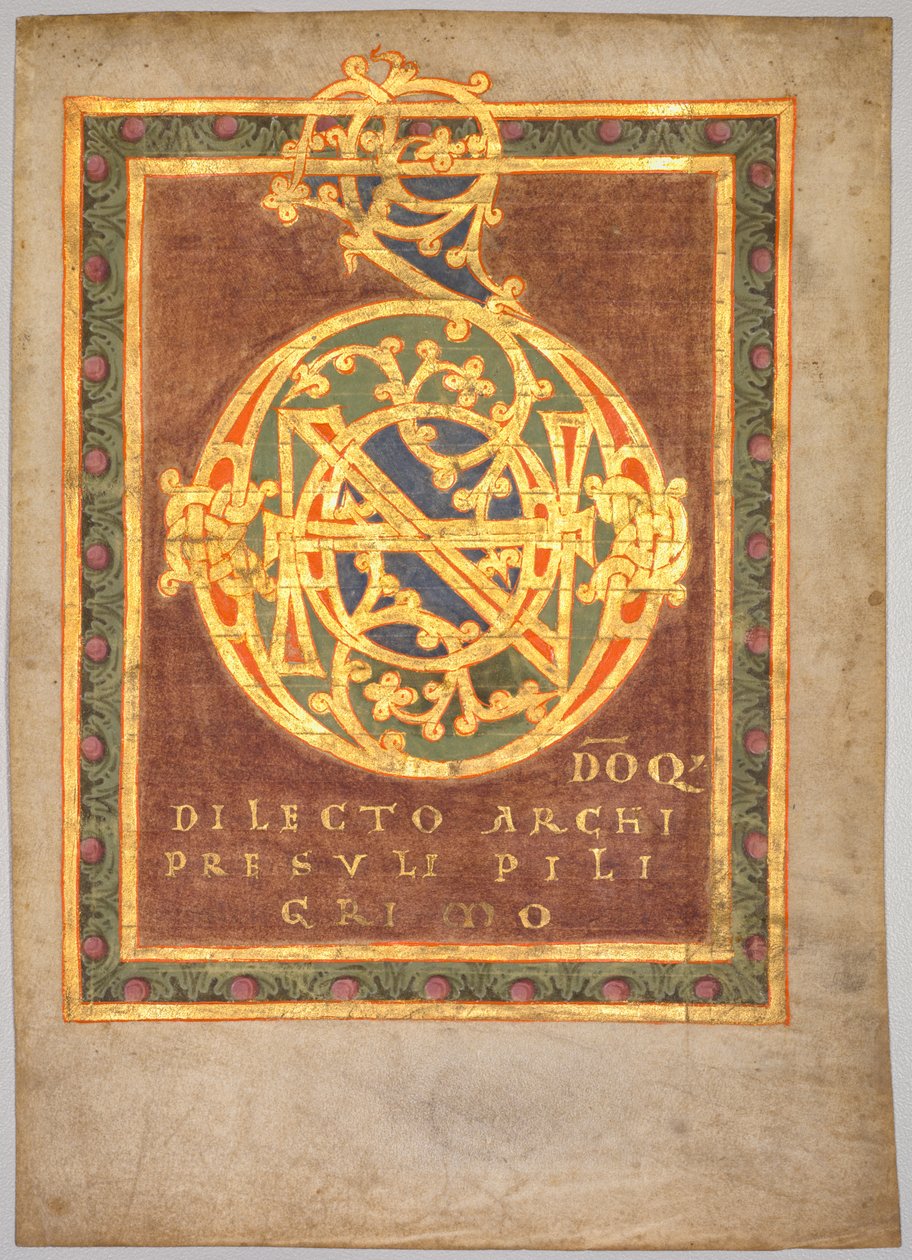 D̅O̅Q'
DILECTO ARCHI
PRESVLI PILI
GRIMO